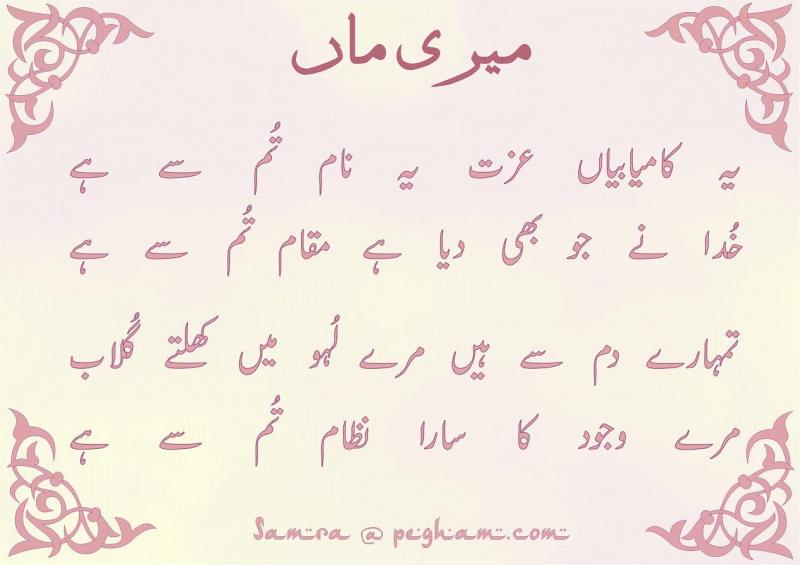 میری ماں
یہ کامیابیاں عزت یہ نام تُم سے ہے
خُدا نے جو بھی دیا ہے مقام تُم سے ہے
تمہارے دم سے ہیں مرے لُہو میں کھلتے گُلاب
مرے وجود کا سارا نظام تُم سے ہے
Samra @ pegham.com